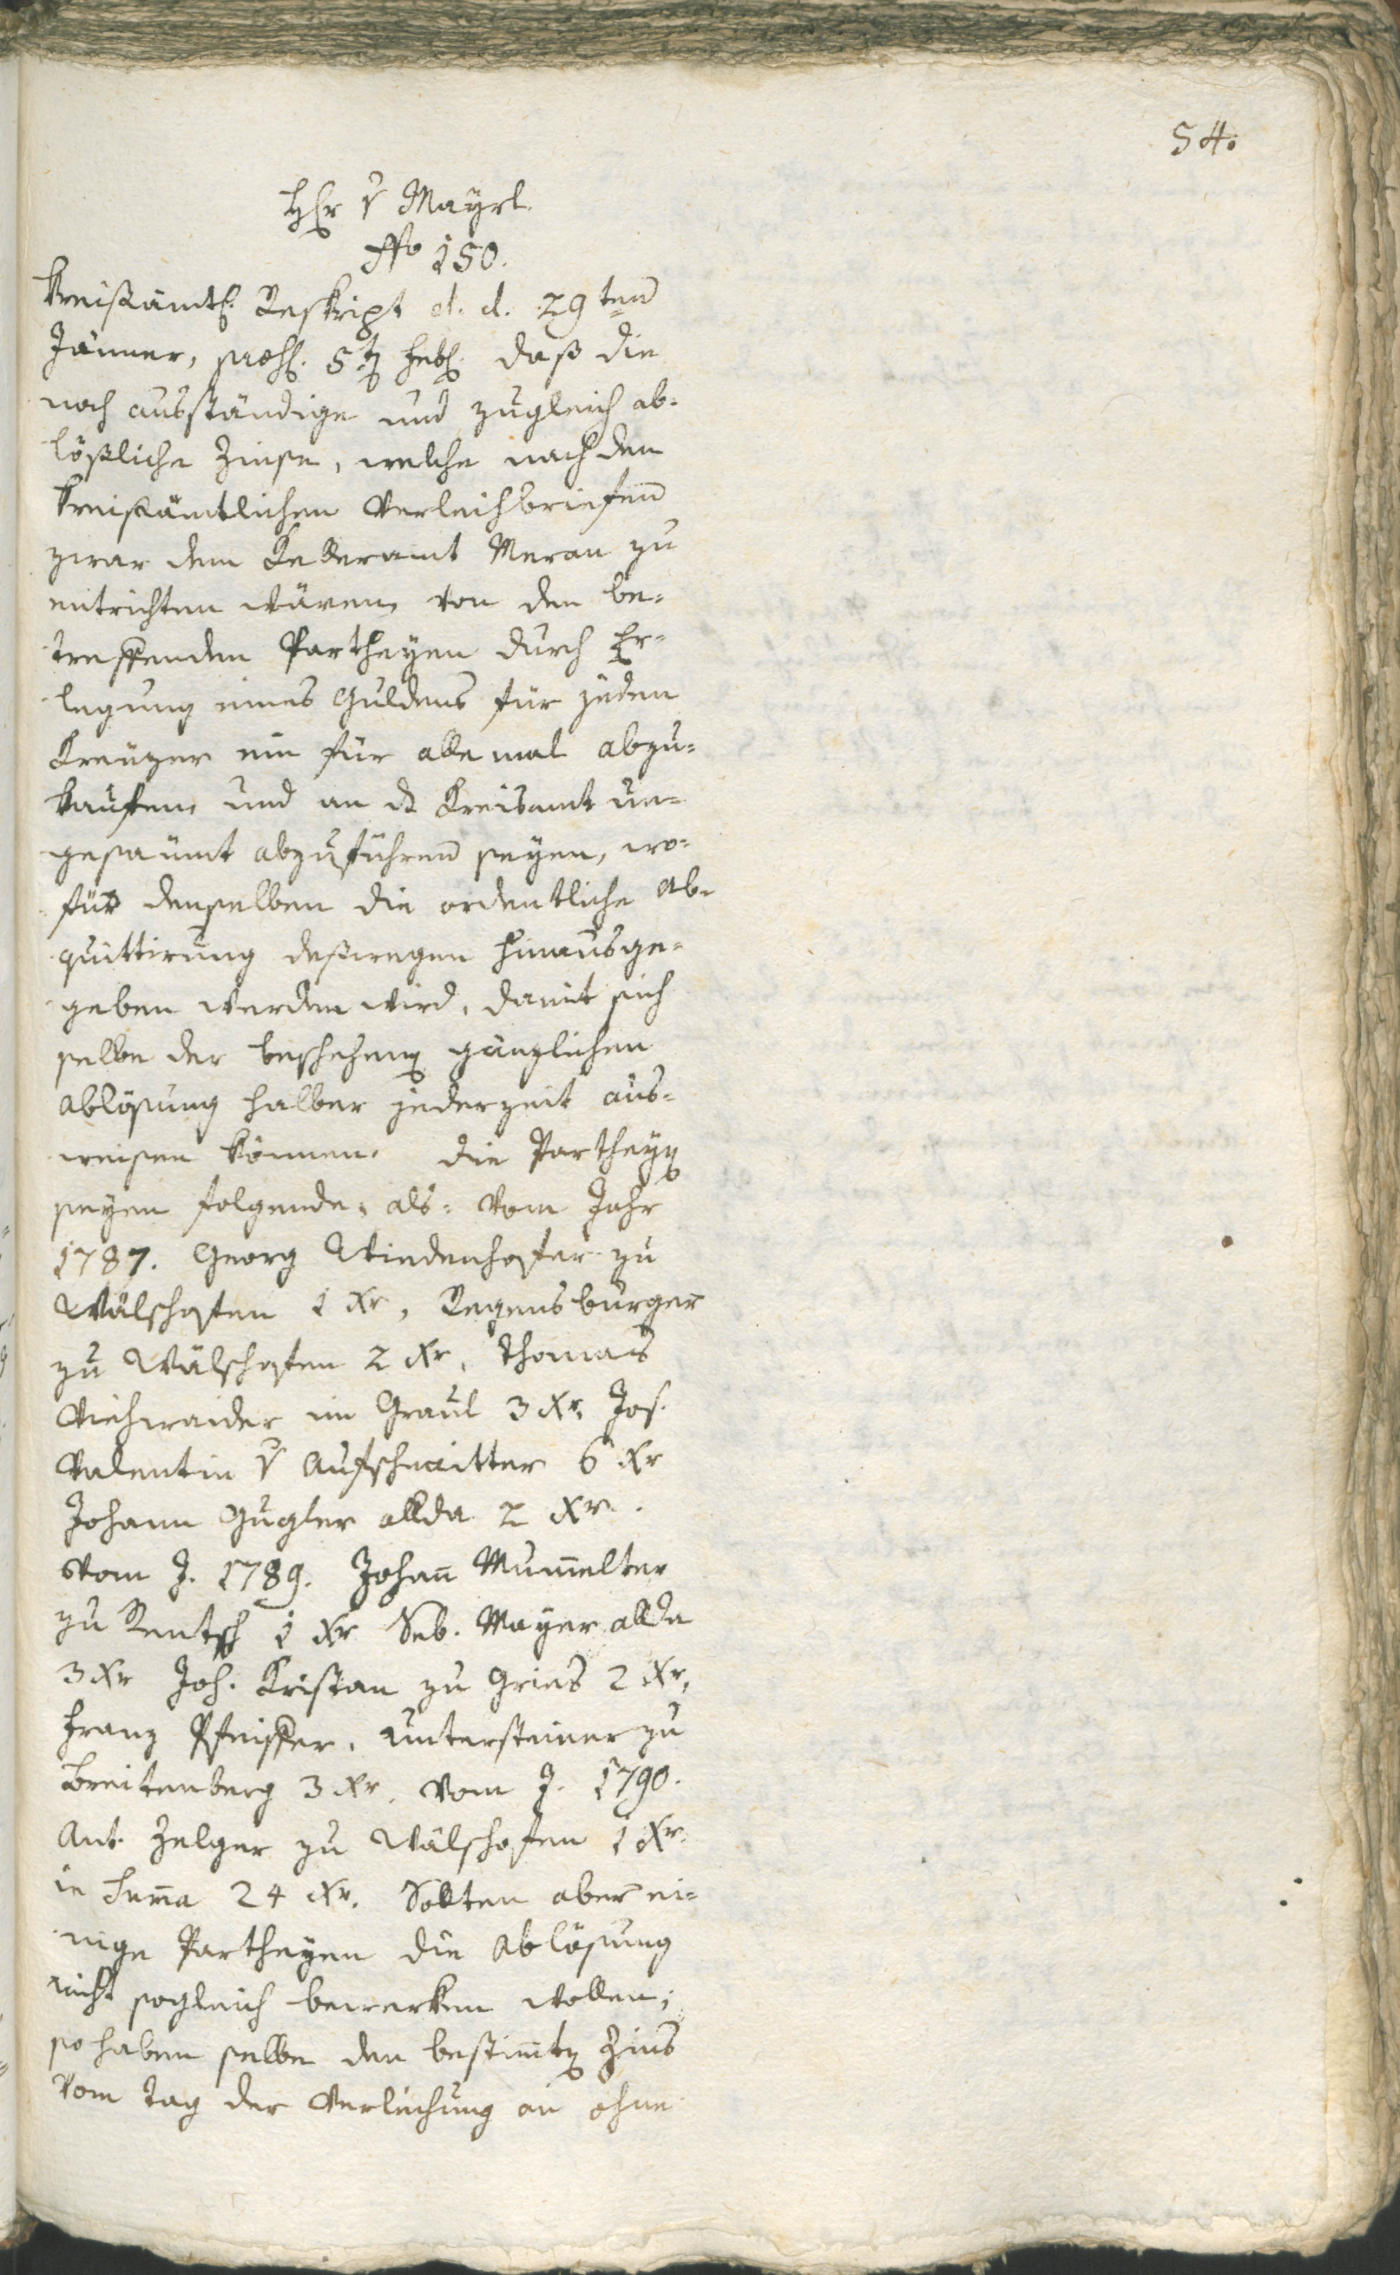 54.
Hr v Mayrl.
No 150.
Kreisämtl. Reskript d. d. 29ten
Jänner, praes. 5t Feb. daß die
noch ausständige und zugleich ab-
lößliche Zinse, welche nach den
kreisämtlichen Verleichbriefen
zwar dem Kelleramt Meran zu
entrichten wären, von den be-
treffenden Partheyen durch Er-
legung eines Guldens für jeden
Kreuzer ein für allemal abzu-
kaufen, und an das Kreisamt un-
gesaumt abzuführen seyen, wo-
für denselben die ordentliche Ab-
quittirung deßwegen hinausge-
geben werden wird, damit sich
selbe der beschehenen gänzlichen
Ablösung halber jederzeit aus-
weisen können. Die Partheyen
seyen folgende, als: Vom Jahr
1787. Georg Windenhofer zu
Wälschofen 1 Xr, Regensburger
zu Wälschofen 2 Xr, Thomas
Viehwaider im Graul 3 Xr, Jos.
Valentin v Aufschnaitter 6 Xr
Johann Gugler allda 2 Xr.
Vom J. 1789. Johan̄ Mum̄elter
zu Rentsch 1 Xr Seb. Mayer allda
3 Xr Joh. Kristan zu Gries 2 Xr,
Franz Pfeiffer, Untersteiner zu
Breitenberg 3 Xr, vom J. 1790.
Ant. Zelger zu Wälschofen 1 Xr.
in Sum̄a 24 Xr. Sollten aber ei-
nige Partheyen die Ablösung
nicht sogleich bewerken wollen;
so haben selbe den bestim̄ten Zins
vom Tag der Verleichung an ohne